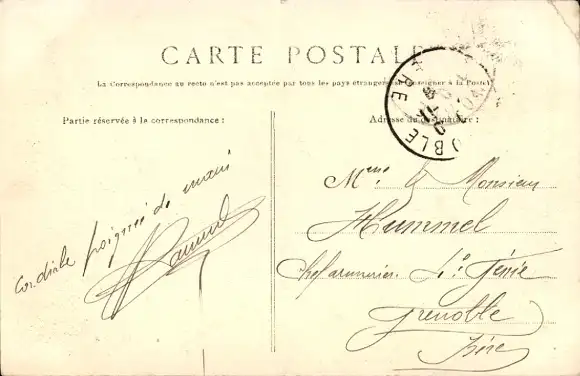 CARTE POSTALE
La Correspondance au recto n'est pas acceptée par tous les pays étrangers (Se renseigner à la Poste)
Partie réservée à la correspondance :
Adresse du destinataire :
Cordiale poignée de main
Mme & Monsieur
Hummel
Chef armurier. 4e Génie
Grenoble
Isère